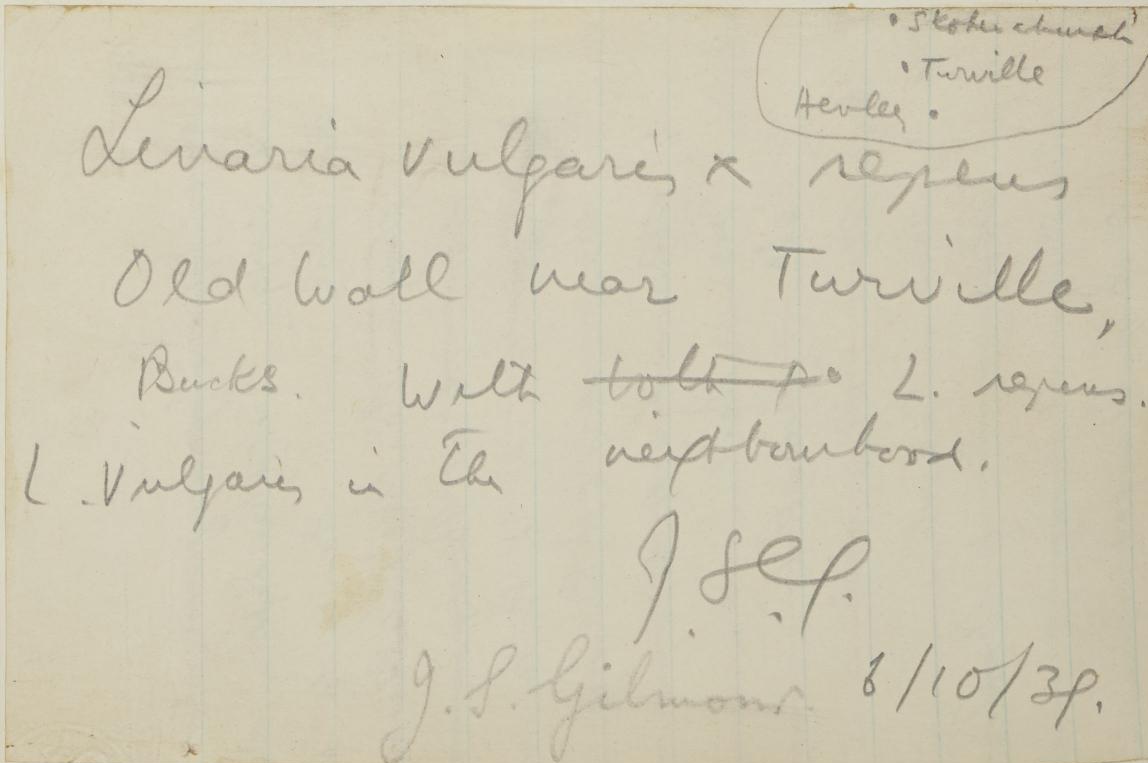 • Skotenchurch
• Turville
Henley •
Linaria vulgaris x repens
Old wall near Turville,
Bucks. With L. repens.
L. vulgaris in the neighbourhood.
J. S. L. G.
J. S. Gilmour. 8/10/39.